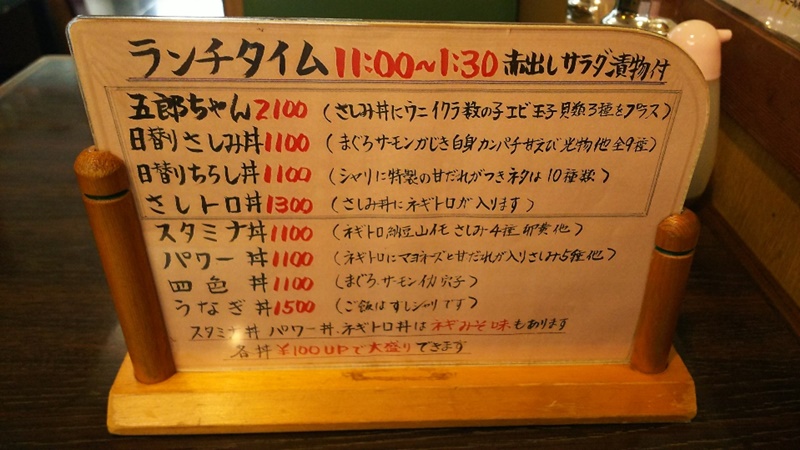 ランチタイム 11:00~1:30 赤出しサラダ漬物付
五郎ちゃん 2100 (さしみ丼にウニイクラ数の子エビ玉子貝類3種をプラス)
日替りさしみ丼 1100 (まぐろサーモンかじき白身カンパチ甘えび光物他全9種)
日替りちらし丼 1100 (シャリに特製の甘だれがつきネタは10種類)
さしトロ丼 1300 (さしみ丼にネギトロが入ります)
スタミナ丼 1100 (ネギトロ納豆山イモさしみ4種卵黄他)
パワー丼 1100 (ネギトロにマヨネーズと甘だれが入りさしみ5種他)
四色丼 1100 (まぐろサーモンイカ穴子)
うなぎ丼 1500 (ご飯はすしシャリです)
スタミナ丼 パワー丼.ネギトロ丼はネギみそ味もあります
各丼¥100UPで大盛りできます